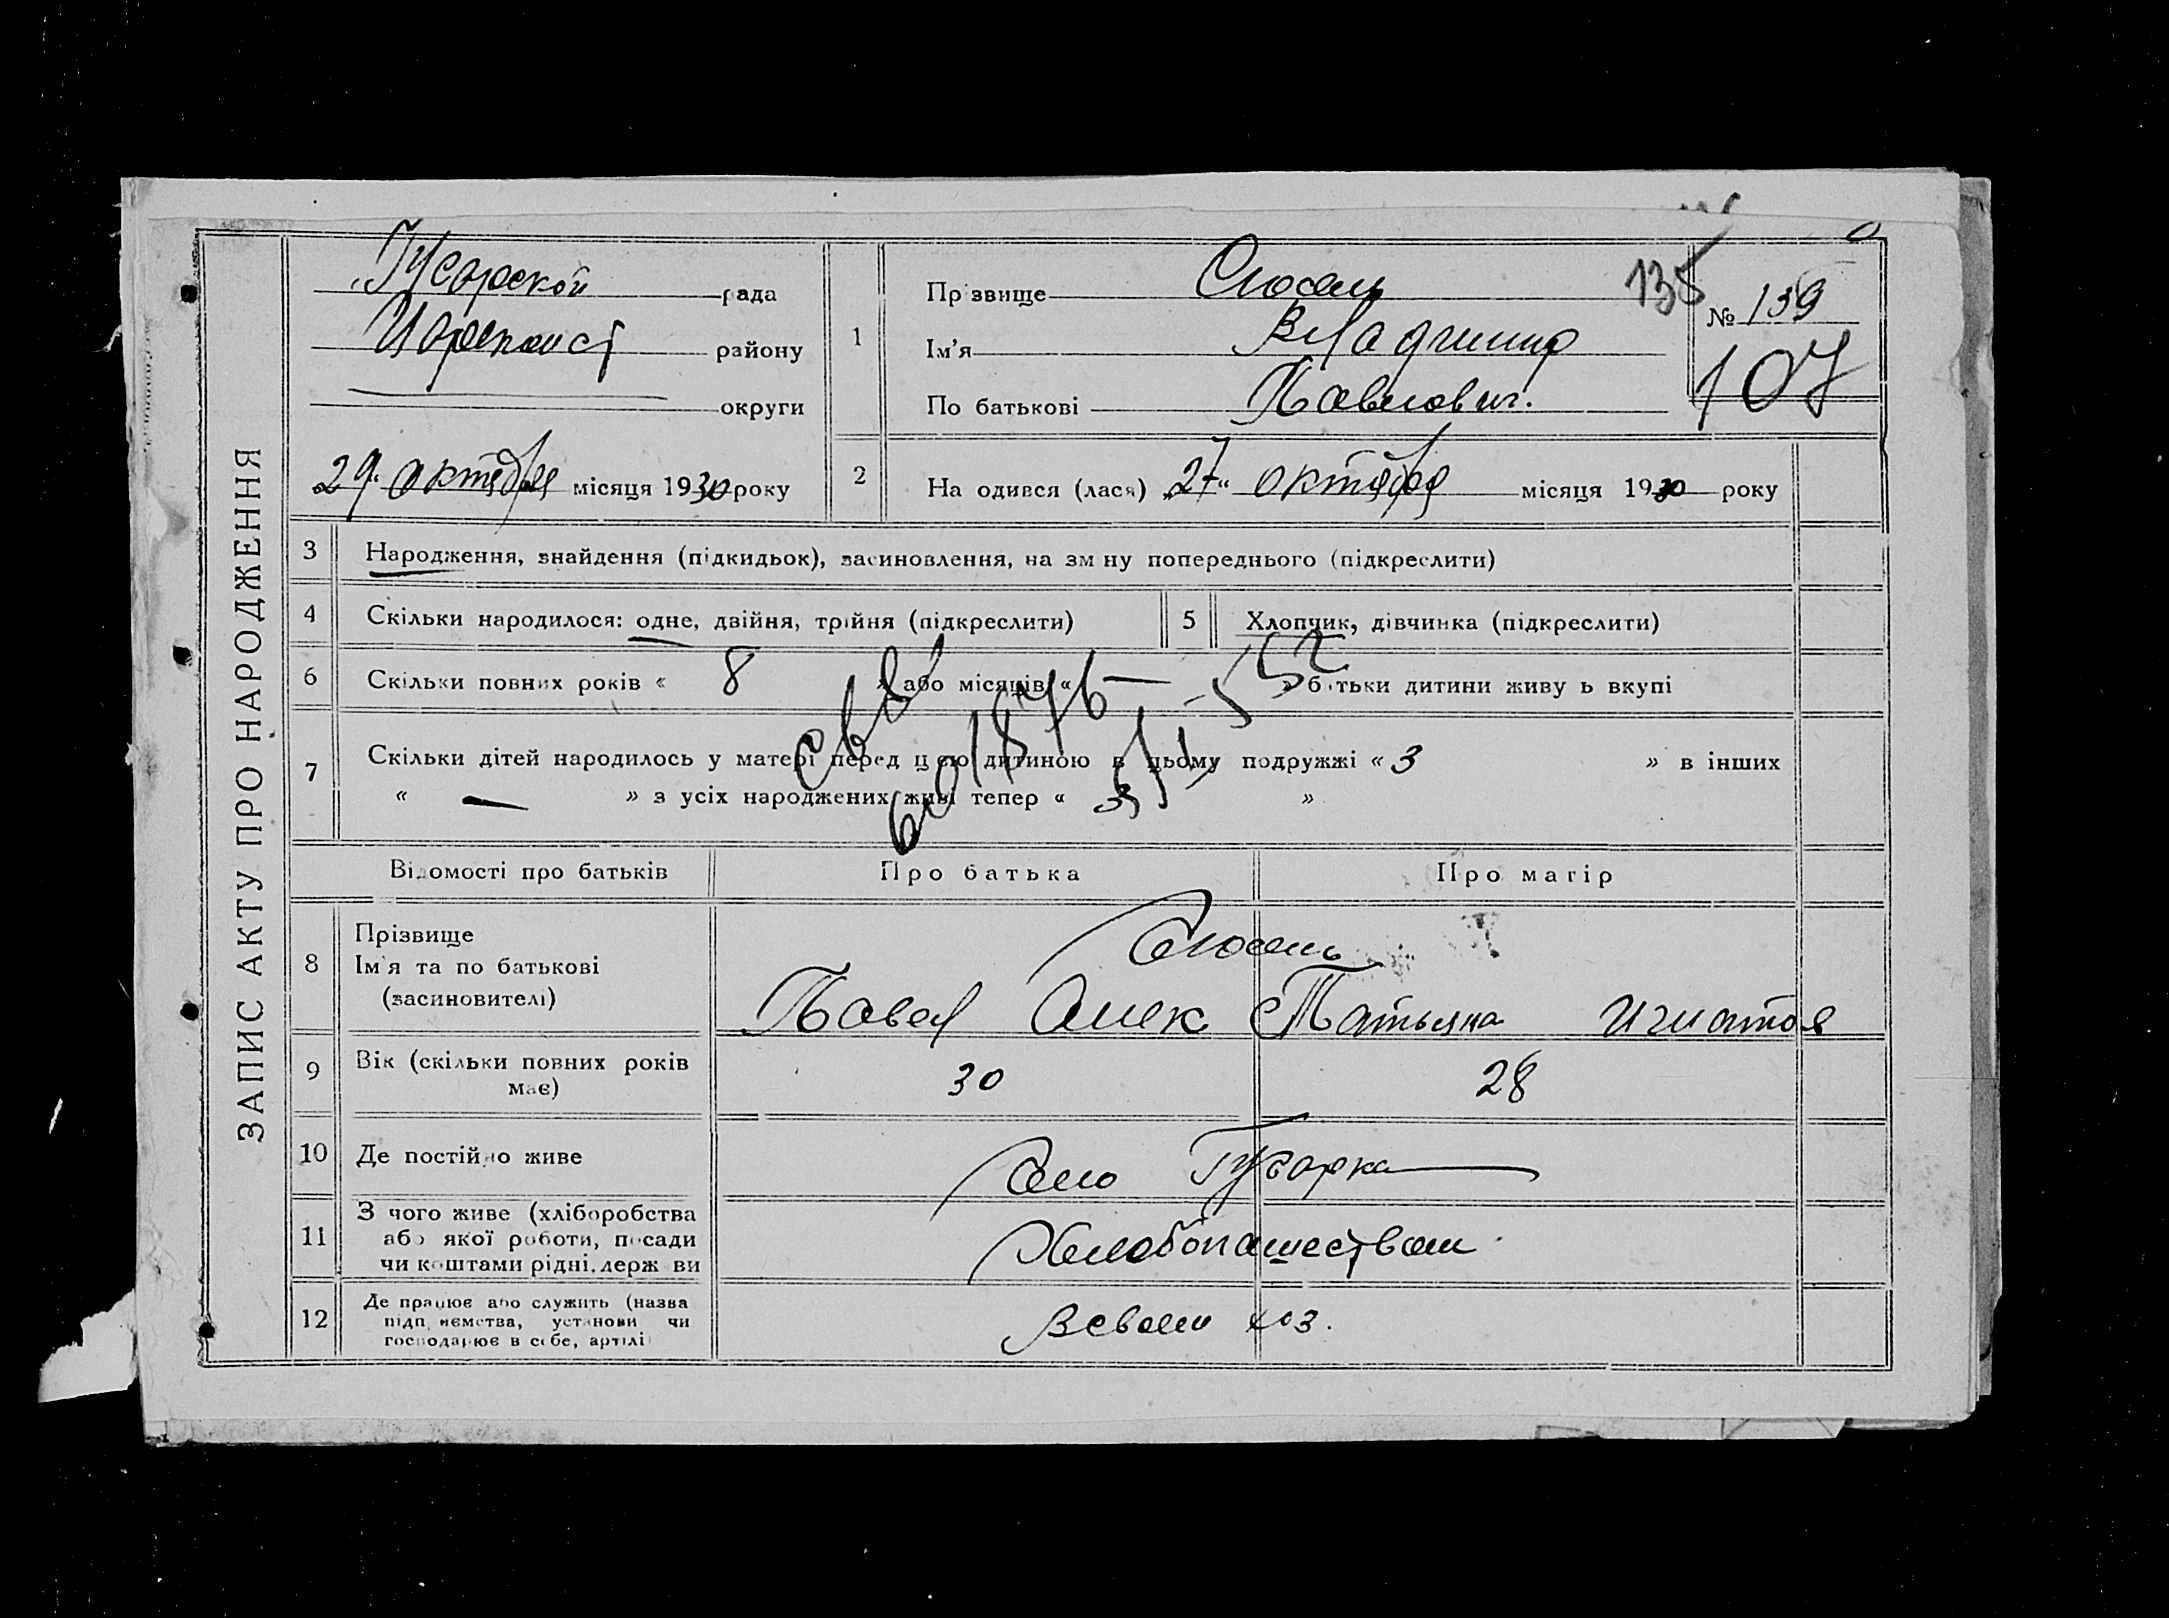 ЗАПИС АКТУ ПРО НАРОДЖЕННЯ
Гусарской рада
району
округи
29 октября місяця 1930 року
1
Прізвище Слюсаль
Ім'я Владимир
По батькові Павлович.
135
№ 139
107
2 На одився (лася) „27“ октября місяця 1930 року
3 Народження, знайдення (підкидьок), засиновлення, на зм ну попереднього (підкреслити)
4 Скільки народилося: одне, двійня, трійня (підкреслити) 5 Хлопчик, дівчинка (підкреслити)
6 Скільки повних років « 8 » або місяців « — » батьки дитини живу ь вкупі
7 Скільки дітей народилось у матері перед цією дитиною в цьому подружжі « 3 » в інших
« — » з усіх народжених живі тепер « 3 »
Відомості про батьків Про батька Про матір
8 Прізвище
Ім'я та по батькові
(засиновителі)
Слюсаль
Павел Алек Татьяна Игнатов
9 Вік (скільки повних років
має)
30 28
10 Де постійно живе Село Гусарка
11 З чого живе (хліборобства
або якої роботи, посади
чи коштами рідні, держ ви
Хлебопашеством
12 Де працює або служить (назва
підп иємства, установи чи
господарює в себе, артілі
В своем хоз.